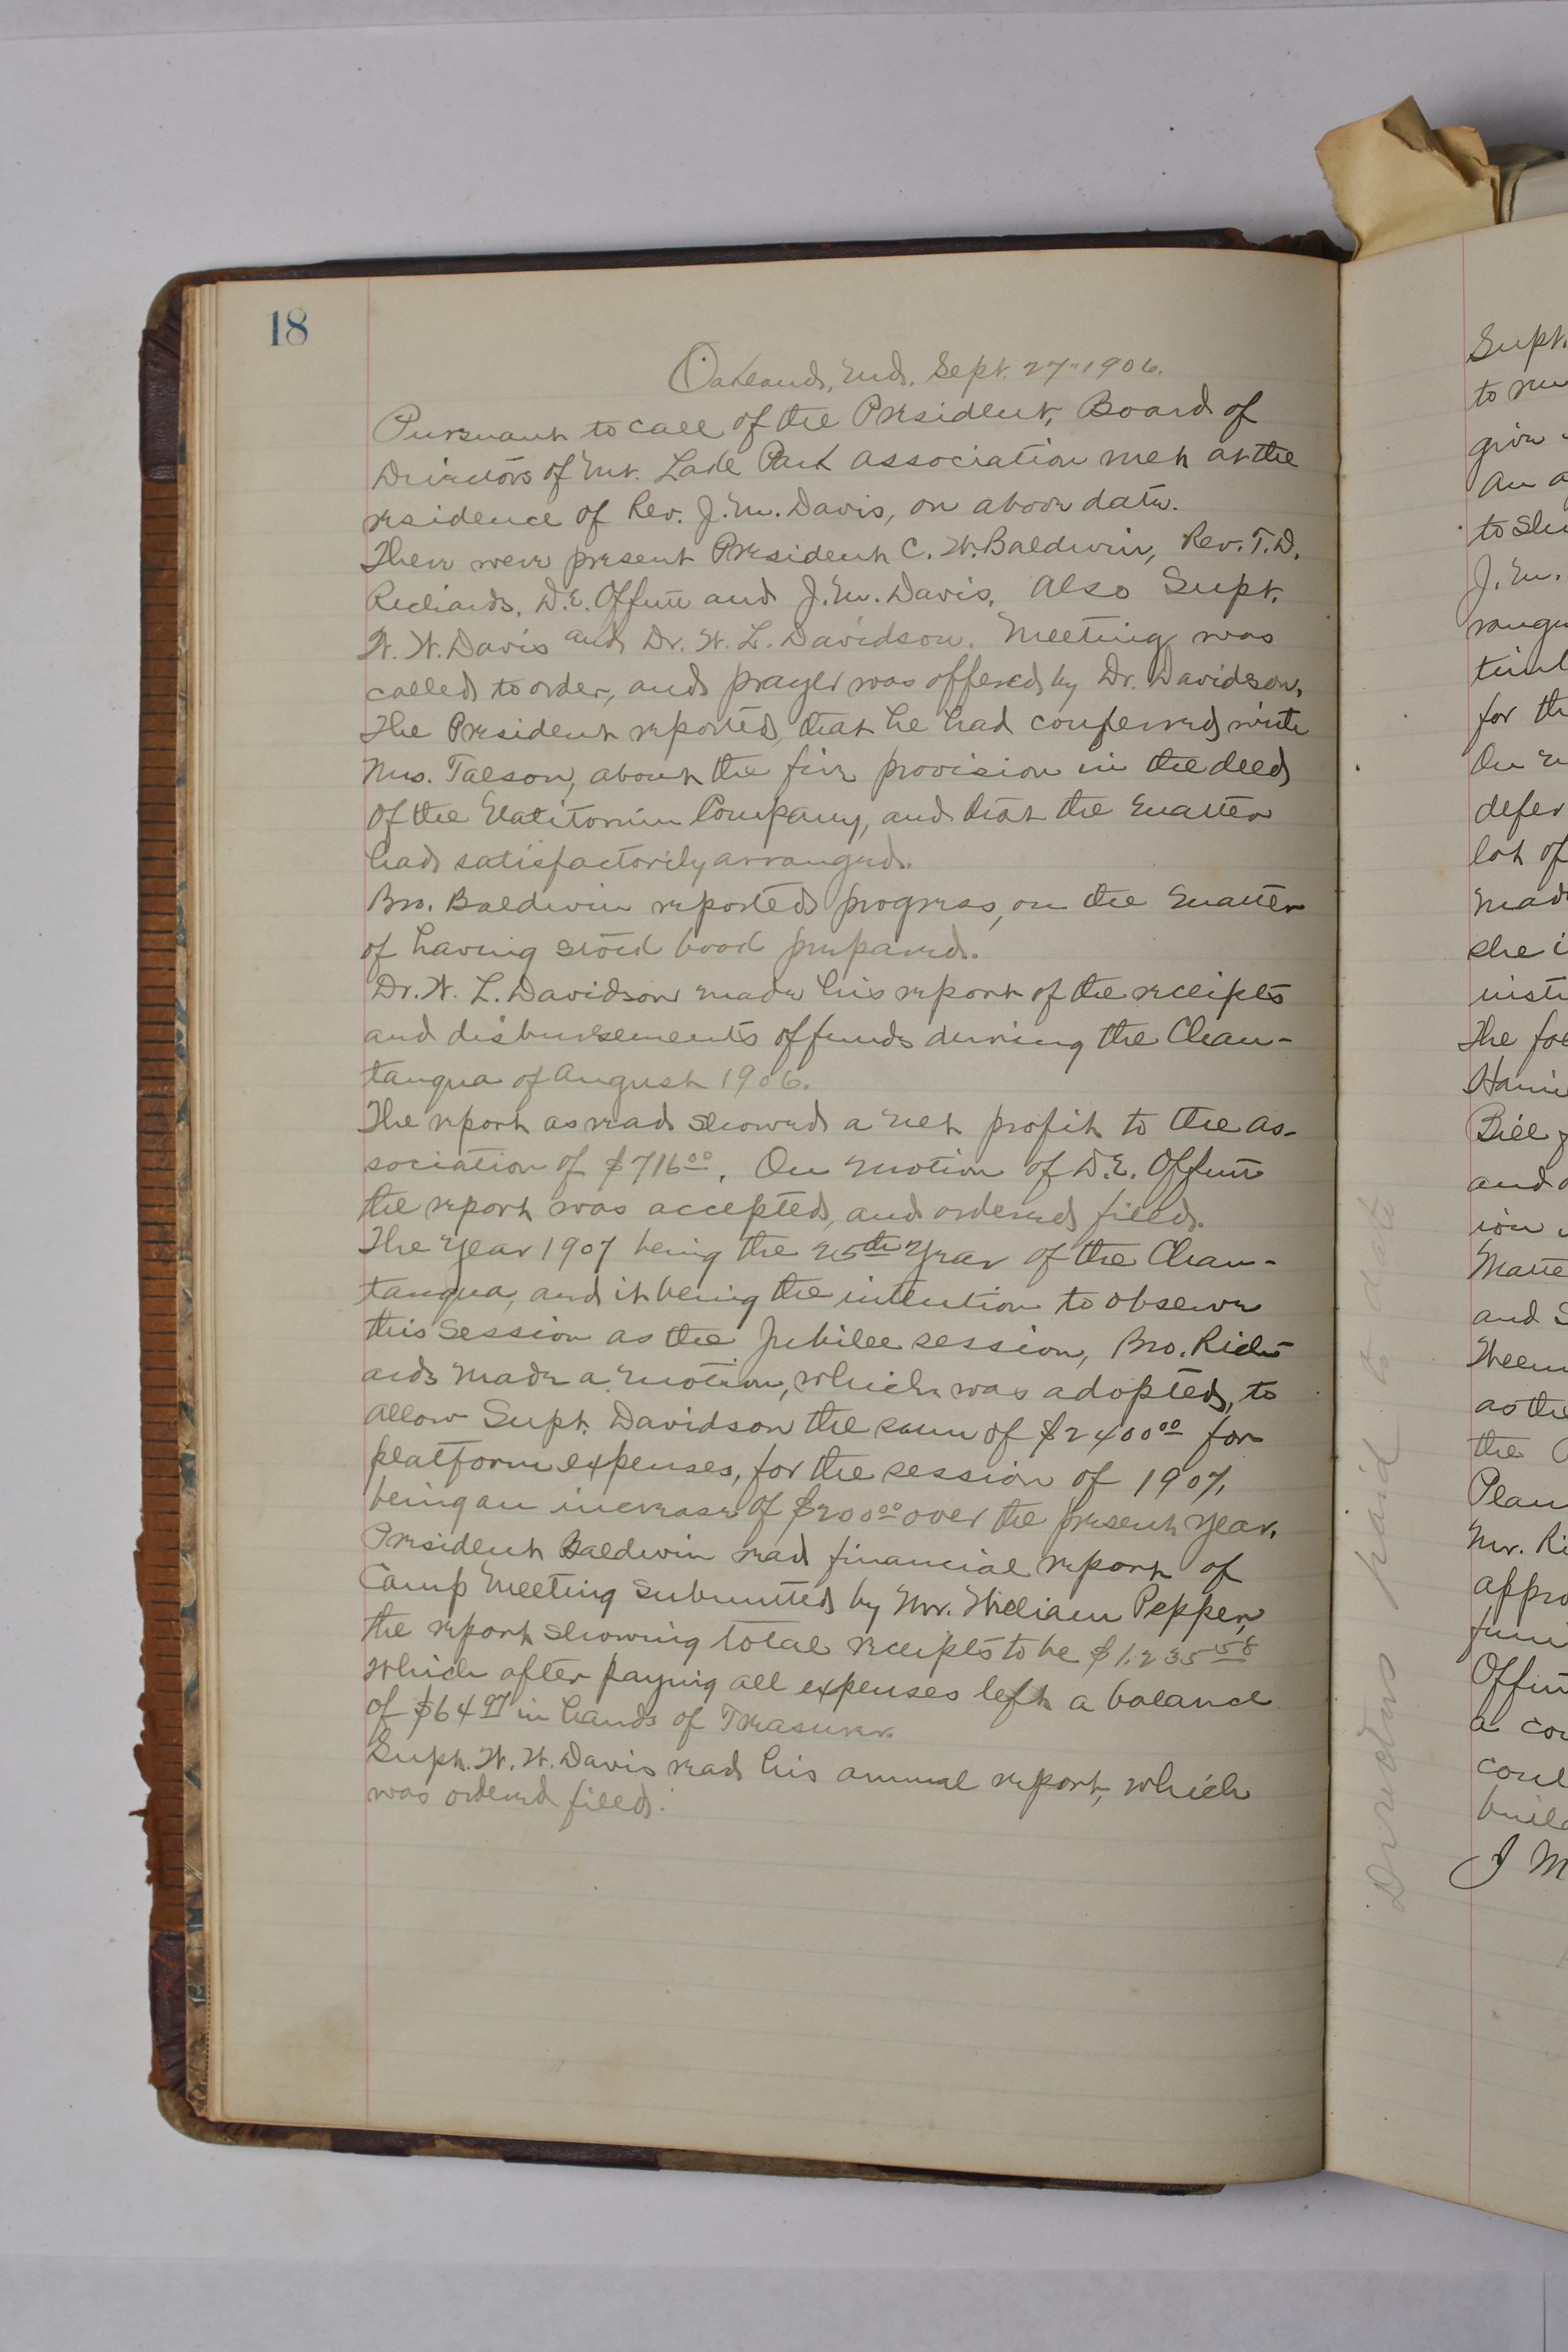 18
Oakland, Md. Sept. 27" 1906.
Pursuant to call of the President, Board of
Directors of Mt. Lake Park association met at the
residence of Rev. J. M. Davis, on above date.
There were present President C. W. Baldwin, Rev. T. D.
Richards, D. E. Offutt and J. M. Davis. Also Supt.
W. W. Davis and Dr. W. L. Davidson. Meeting was
called to order, and prayer was offered by Dr. Davidson.
The President reported, that he had conferred with
Mrs. Talson, about the fire provision in the deed
of the Natitorium Company, and that the matter
had satisfactorily arranged.
Bro. Baldwin reported progress, on the matter
of having stock book prepared.
Dr. W. L. Davidson made his report of the receipts
and disbursements of funds during the Chau-
tauqua of August 1906.
The report as read showed a net profit to the as-
sociation of $716 00. On motion of D. E. Offutt
the report was accepted, and ordered filed.
The year 1907 being the 25th year of the Chau-
tauqua, and it being the intention to observe
this session as the Jubilee session, Bro. Rich-
ards made a motion, which was adopted, to
allow Supt. Davidson the sum of $2400 00 for
platform expenses, for the session of 1907,
being an increase of $200 00 over the present year.
President Baldwin read financial report of
Camp Meeting submitted by Mr. William Pepper,
the report showing total receipts to be $1.235 58
which after paying all expenses left a balance
of $64 97 in hands of Treasurer.
Supt. W. W. Davis read his annual report, which
was ordered filed.
Directors paid to date
Supt.
to
give
An
to
J. M.
for th
On
defer
lot of
made
she i
The
Bill
and
ion
and S
as the
the
Mr. Ri
appro
a
J M